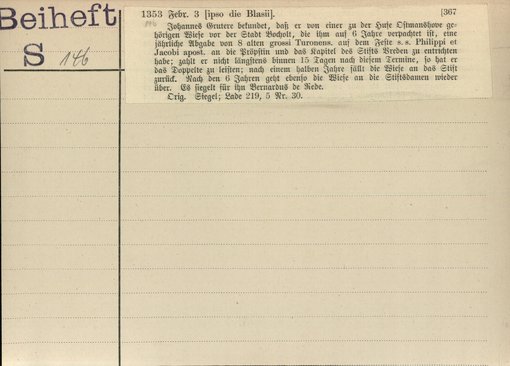 Beiheft
S 146
1353 Febr. 3 [ipso die Blasii]. [367
Johannes Grutere bekundet, daß er von einer zu der Hufe Ostmanshove ge-
hörigen Wiese vor der Stadt Bocholt, die ihm auf 6 Jahre verpachtet ist, eine
jährliche Abgabe von 8 alten grossi Turonens. auf dem Feste s.s. Philippi et
Jacobi apost. an die Pröpstin und das Kapitel des Stifts Vreden zu entrichten
habe; zahlt er nicht längstens binnen 15 Tagen nach diesem Termine, so hat er
das Doppelte zu leisten; nach einem halben Jahre fällt die Wiese an das Stift
zurück. Nach den 6 Jahren geht ebenso die Wiese an die Stiftsdamen wieder
über. Es siegelt für ihn Bernardus de Rede.
Orig. Siegel; Lade 219, 5 Nr. 30.